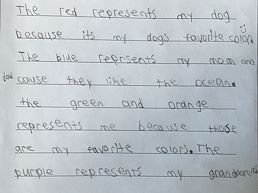 The red represents my dog
because its my dogs favorite color.
The blue reprsents my mom and
cause they like the ocean.
the green and orange
represents me because those
are my favorite colors. The
purple represents my grandparents